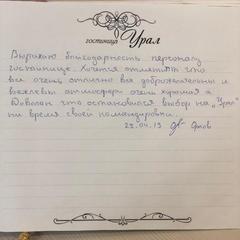 гостиница Урал
Выражаю благодарность персоналу
гостиницы. Хочется отметить что
все очень отлично все доброжелательны и
вежливы атмосфера очень хорошая
Доволен что остановился выбор на „Урал"
на время своей командировки.
22.04.19